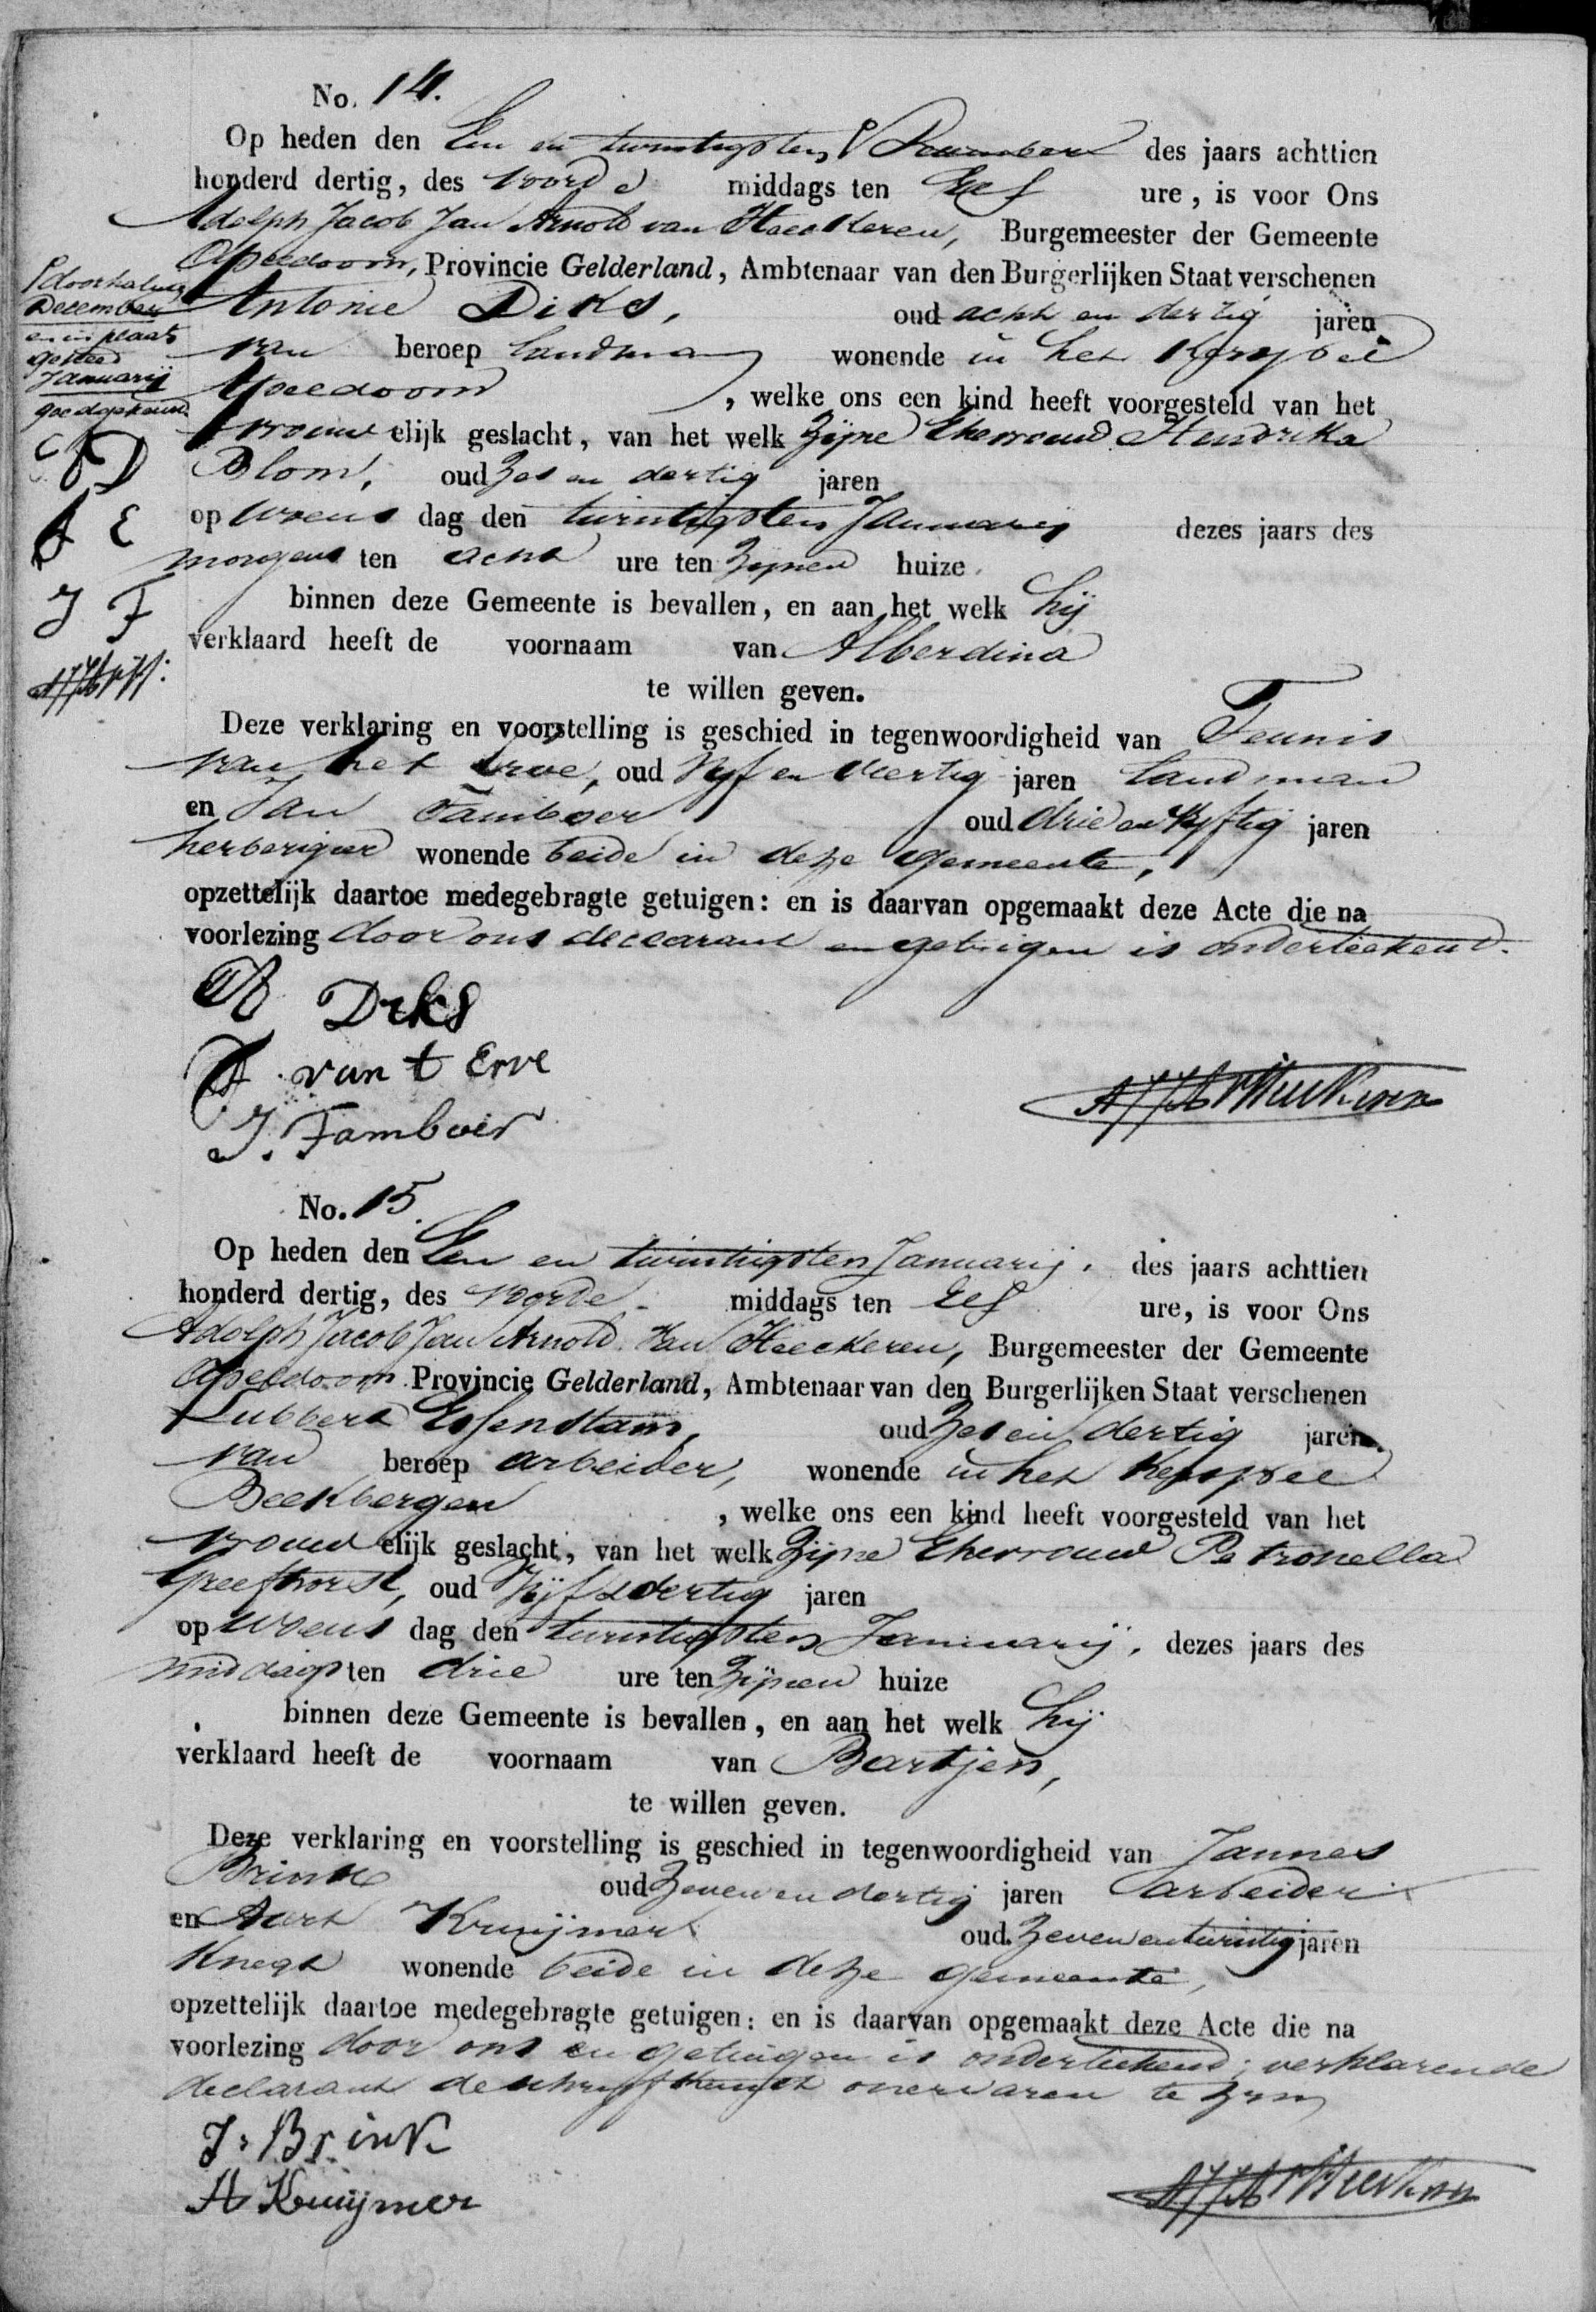 No. 14.
Op heden den Een en twintigsten December des jaars achttien
honderd dertig, des voorde middags ten Elf ure, is voor Ons
Adolph Jacob Jan Arnold van Haeckeren, Burgemeester der Gemeente
Apeldoorn, Provincie Gelderland, Ambtenaar van den Burgerlijken Staat verschenen
Antonie Diks, oud acht en dertig jaren
van beroep Landman wonende in het Kerspel
Apeldoorn, welke ons een kind heeft voorgesteld van het
vrouwelijk geslacht, van het welk zijne Ehevrouw Hendrika
Blom, oud zes en dertig jaren
op woensdag den twintigsten Januarij dezes jaars des
morgens ten acht ure ten zijnen huize
binnen deze Gemeente is bevallen, en aan het welk hij
verklaard heeft de voornaam van Alberdina
te willen geven.
Deze verklaring en voorstelling is geschied in tegenwoordigheid van Teunis
van het Erve, oud Vyf en Veertig jaren Landman
en Jan Tamboer oud drie en Vyftig jaren
herbergier wonende beide in deze gemeente,
opzettelijk daartoe medegebragte getuigen: en is daarvan opgemaakt deze Acte die na
voorlezing door ons declarant en getuigen is onderteekend.
doorhaling
December
en in plaats
gesteld
Januarij
goedgekeurd
D
E
J F
A Diks
T van t Erve
J. Tamboer
No. 15.
Op heden den Een en twintigsten Januarij. des jaars achttien
honderd dertig, des voorde middags ten Elf ure, is voor Ons
Adolph Jacob Jan Arnold van Haeckeren, Burgemeester der Gemeente
Apeldoorn Provincie Gelderland, Ambtenaar van den Burgerlijken Staat verschenen
Lubbert Essenstam, oud zes en dertig jaren
van beroep arbeider, wonende in het Kerspel
Beekbergen, welke ons een kind heeft voorgesteld van het
vrouwelijk geslacht, van het welk zijne Ehevrouw Petronella
Greefhorst, oud Vijf & dertig jaren
op woensdag den twintigsten Januarij, dezes jaars des
middags ten drie ure ten zijnen huize
binnen deze Gemeente is bevallen, en aan het welk hij
verklaard heeft de voornaam van Bartjen,
te willen geven.
Deze verklaring en voorstelling is geschied in tegenwoordigheid van Jannes
Brink oud zeven en dertig jaren arbeider
en Aart Kruijmer oud zeven en twintig jaren
Knegt wonende beide in deze gemeente,
opzettelijk daartoe medegebragte getuigen: en is daarvan opgemaakt deze Acte die na
voorlezing door ons en getuigen is onderteekend; verklarende
declarant de schryfkunst onervaren te zyn
J: Brink
A Kruijmer